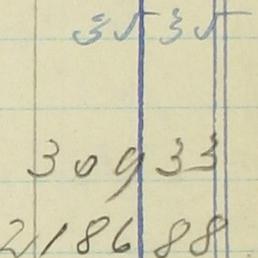 35 35
309 33
2186 88